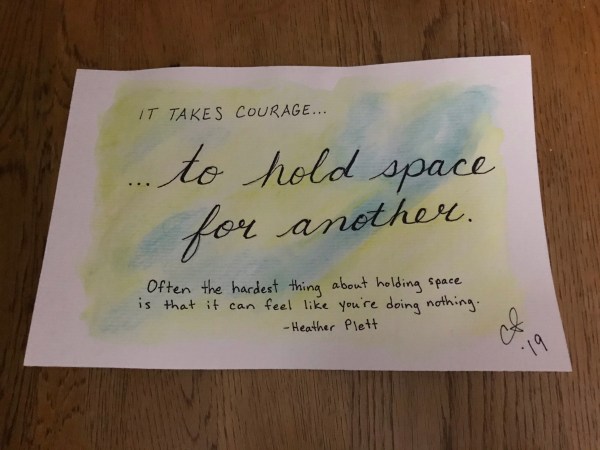 IT TAKES COURAGE...
... to hold space
for another.
Often the hardest thing about holding space
is that it can feel like you're doing nothing.
-Heather Plett
'19